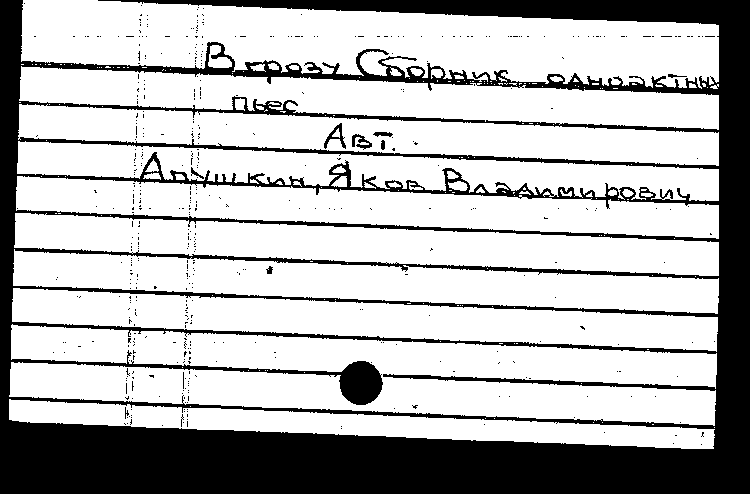 В грозу Сборник одноактных
пьес
Авт.
Апушкин, Яков Владимирович